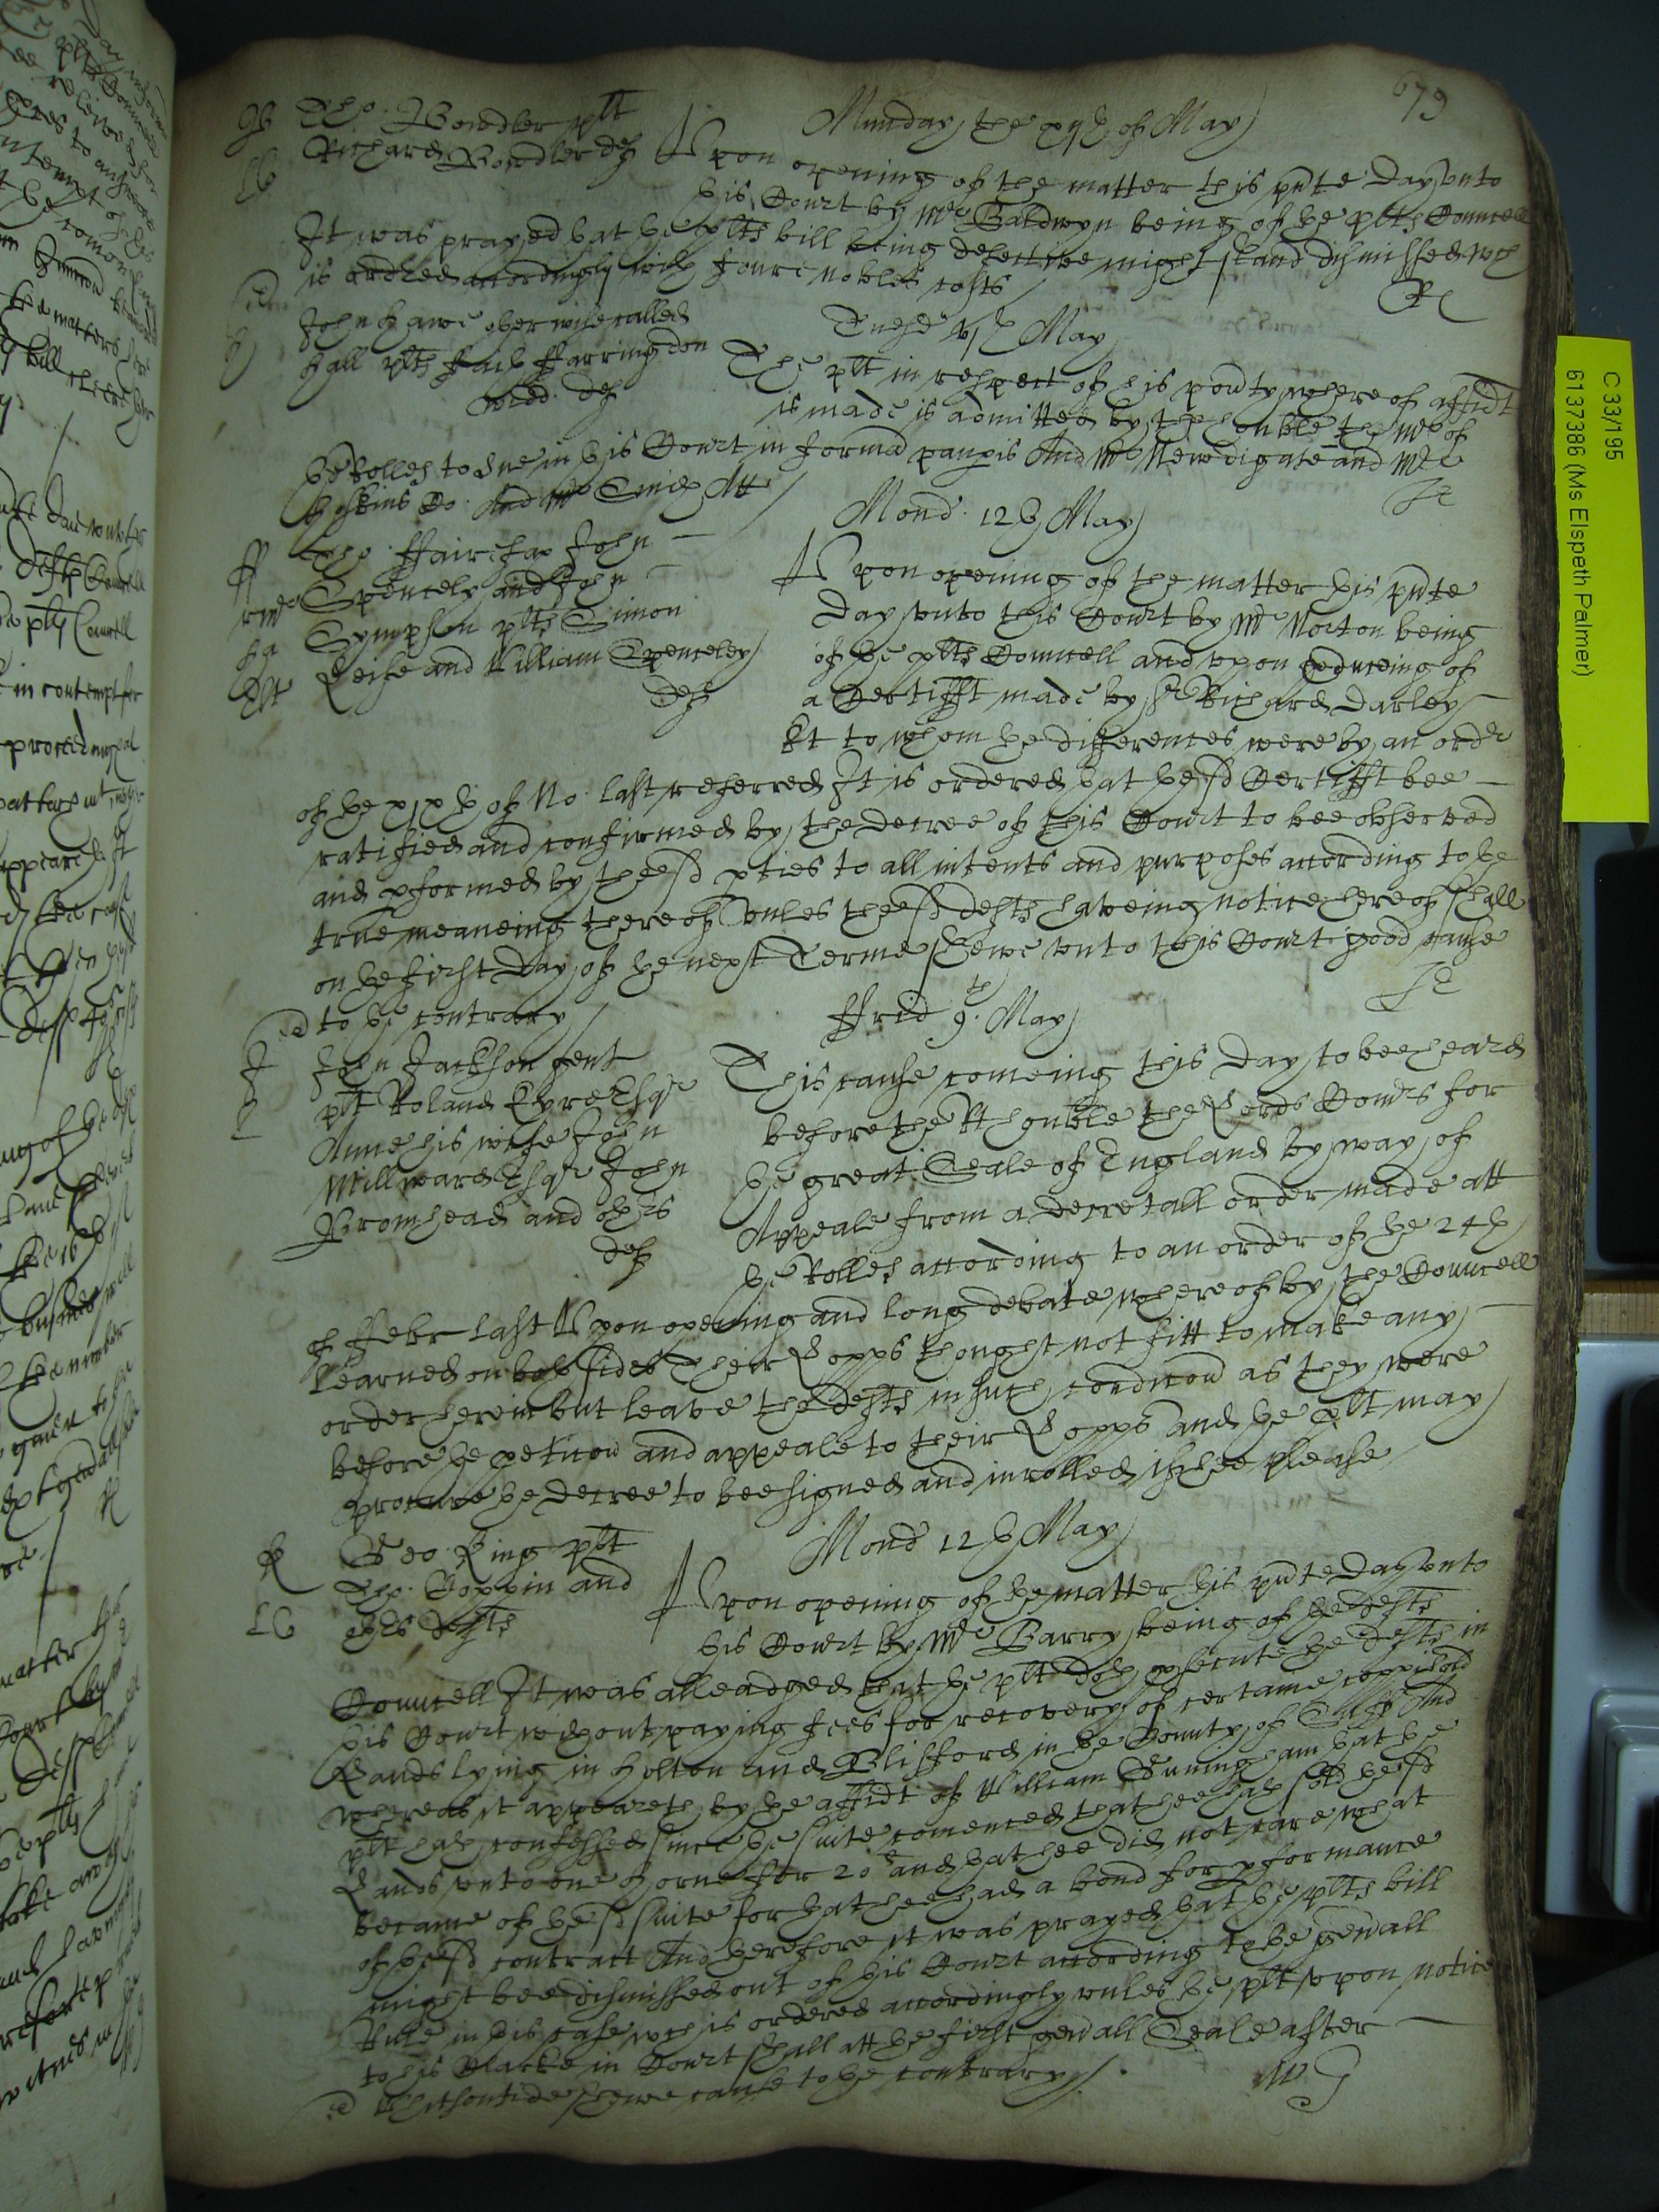 679
Munday the xijth of May
B Tho. Bowdler plt
Richard Bowdler deft
LC
Upon opening of the matter this pnte day unto
this Court by Mr Baldwyn being of the plts Councell
It was prayed that the plts bill being defective might stand dismissed wch
is ordred accordingly with foure nobles costs
Tuesd vjth May
John Hawe otherwise called
Hall plt Faith Farringdon
widd. def
The plt in respect of his povty whereof affidt
is made is admitted by the honble the Mr of
the Rolles to sue in this Court in forma paupis And Mr Newdigate and Mr
Hoskins Co. And Mr Smith Att
Mond. 12th May
ff Tho. ffairefax John
Spenceley and John
Sympson plts Simon
Leife and William Spenceley
defts
Upon opening of the matter this pnte
day unto this Court by Mr Norton being
of the plts Councell and upon pduceing of
a Certifft made by Sr Richard Darley
Kt to whom the differences were by an order
of the xixth of No. last referred It is ordered that the sd Certifft bee
ratified and confirmed by the decree of this Court to bee observed
and pformed by the sd pties to all intents and purposes according to the
true meaneing thereof unles the sd defts haveing notice hereof shall
on the first day of the next Terme shewe unto this Court good cause
to the contrary
ffrid 9th May
J John Jackson gent
plt Roland Eyre Esqr
Anne his wife John
Millward Esqr John
Bromhead and othrs
defts
This cause comeing this day to bee heard
before the Rt honble the Lords Comrs for
the great Seale of England by way of
Appeale from a decretall order made att
the Rolles according to an order of the 24th
of ffebr last Upon opening and long debate whereof by the Councell
learned on both sides Their Lopps thought not fitt to make any
order herein but leave the defts in such condicon as they were
before the peticon and appeale to their Lopps and the plt may
procure the decree to bee signed and inrolled if hee please
Mond 12th May
K Geo. King plt
Tho. Coppin and
othrs defts
LC
Upon opening of the matter this pnte day unto
this Court by Mr Barry being of the defts
Councell It was alleadged that the plt doth psecute the defts in
this Court without paying fees for recovery of certaine coppihold
Lands lying in Holton and Blifford in the County of Suff And
whereas it appeareth by the affidt of William Guningham that the
plt hath confessed since the suite comenced that hee hath sold the sd
Lands unto one Horne for 20l and that hee did not care what
became of the sd suite for that hee had a bond for pformance
of the sd contract And therefore it was prayed that the plts bill
might bee dismissed out of this Court according to the genall
Rule in this case wch is ordered accordingly unles the plt upon notice
to his Clarke in Court shall att the first genall Seale after
Whitsontide shewe cause to the contrary
C33/195
6137386 (Ms Elspeth Palmer)